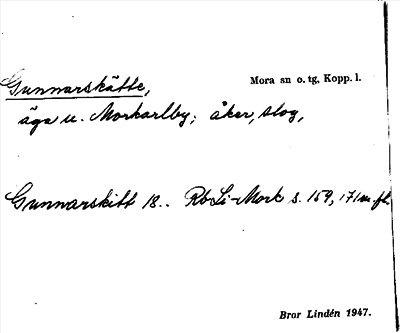 Gunnarskätte, Mora sn o. tg, Kopp. l.
äga u. Morkarlby; åker, slog,
Gunnarskitt 18.. Rb Li-Mork s. 159, 171 m. fl.
Bror Lindén 1947.